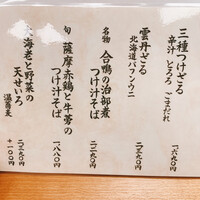 三種つけざる
辛汁 とろろ ごまだれ
一六九〇円
雲丹ざる
北海道バフンウニ
二三九〇円
名物 合鴨の治部煮
つけ汁そば
二二九〇円
旬 薩摩赤鶏と牛蒡の
つけ汁そば
一八八〇円
大海老と野菜の
天せいろ
二三九〇円
温蕎麦
+一〇〇円